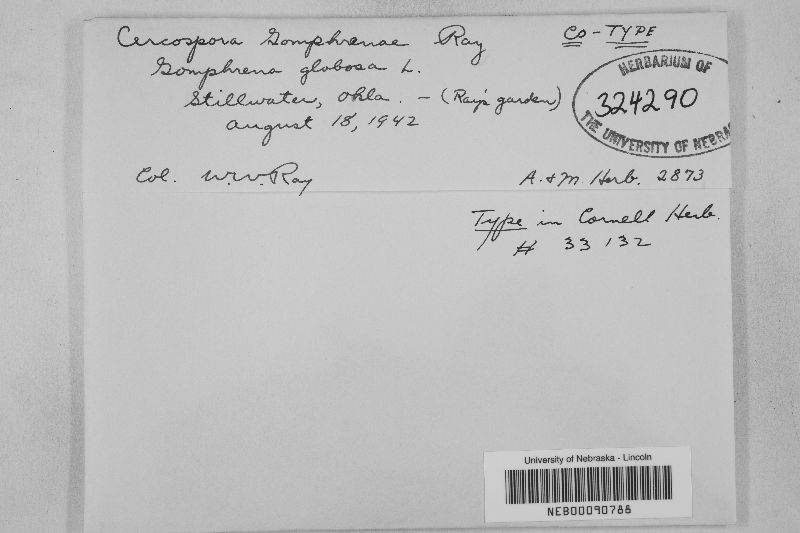 Cercospora Gomphrenae Ray
Co-TYPE
Gomphrena globosa L.
Stillwater, Okla. - (Ray's garden)
August 18, 1942
HERBARIUM OF
324290
THE UNIVERSITY OF NEBRA
Col. W.W. Ray
A. & M. Herb. 2873
Type in Cornell Herb.
# 33132
University of Nebraska - Lincoln
NEB00090788